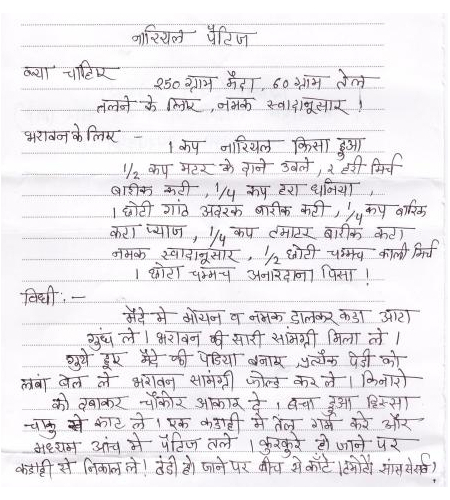 नारियल पैटिज
क्या चाहिए
250 ग्राम मैदा, 60 ग्राम तेल
तलने के लिए, नमक स्वादानुसार !
भरावन के लिए -
1 कप नारियल किसा हुआ
1/2 कप मटर के दाने उबले, 2 हरी मिर्च
बारीक कटी, 1/4 कप हरा धनिया,
1 छोटी गांठ अदरक बारीक कटी, 1/4 कप बारिक
कटा प्याज, 1/4 कप टमाटर बारीक कटा
नमक स्वादानुसार, 1/2 छोटी चम्मच काली मिर्च
1 छोटा चम्मच अनारदाना पिसा !
विधी :-
मैदे मे मोयन व नमक डालकर कडा आटा
गुंध ले ! भरावन की सारी सामग्री मिला ले !
गुंथे हुए मैदे की पेडिया बनाए, प्रत्येक पेडी को
लंबा बेल ले भरावन सामग्री फोल्ड कर ले ! किनारो
को दबाकर चौकोर आकार दे ! बचा हुआ हिस्सा
चाकु से काट ले ! एक कडाही मे तेल गर्म करे और
मध्यम आंच मे पैटिज तले ! कुरकुरे हो जाने पर
कडाही से निकाल ले ! ठंडी हो जाने पर बीच से काँटे ! टोमैटो सॉस से सर्व !